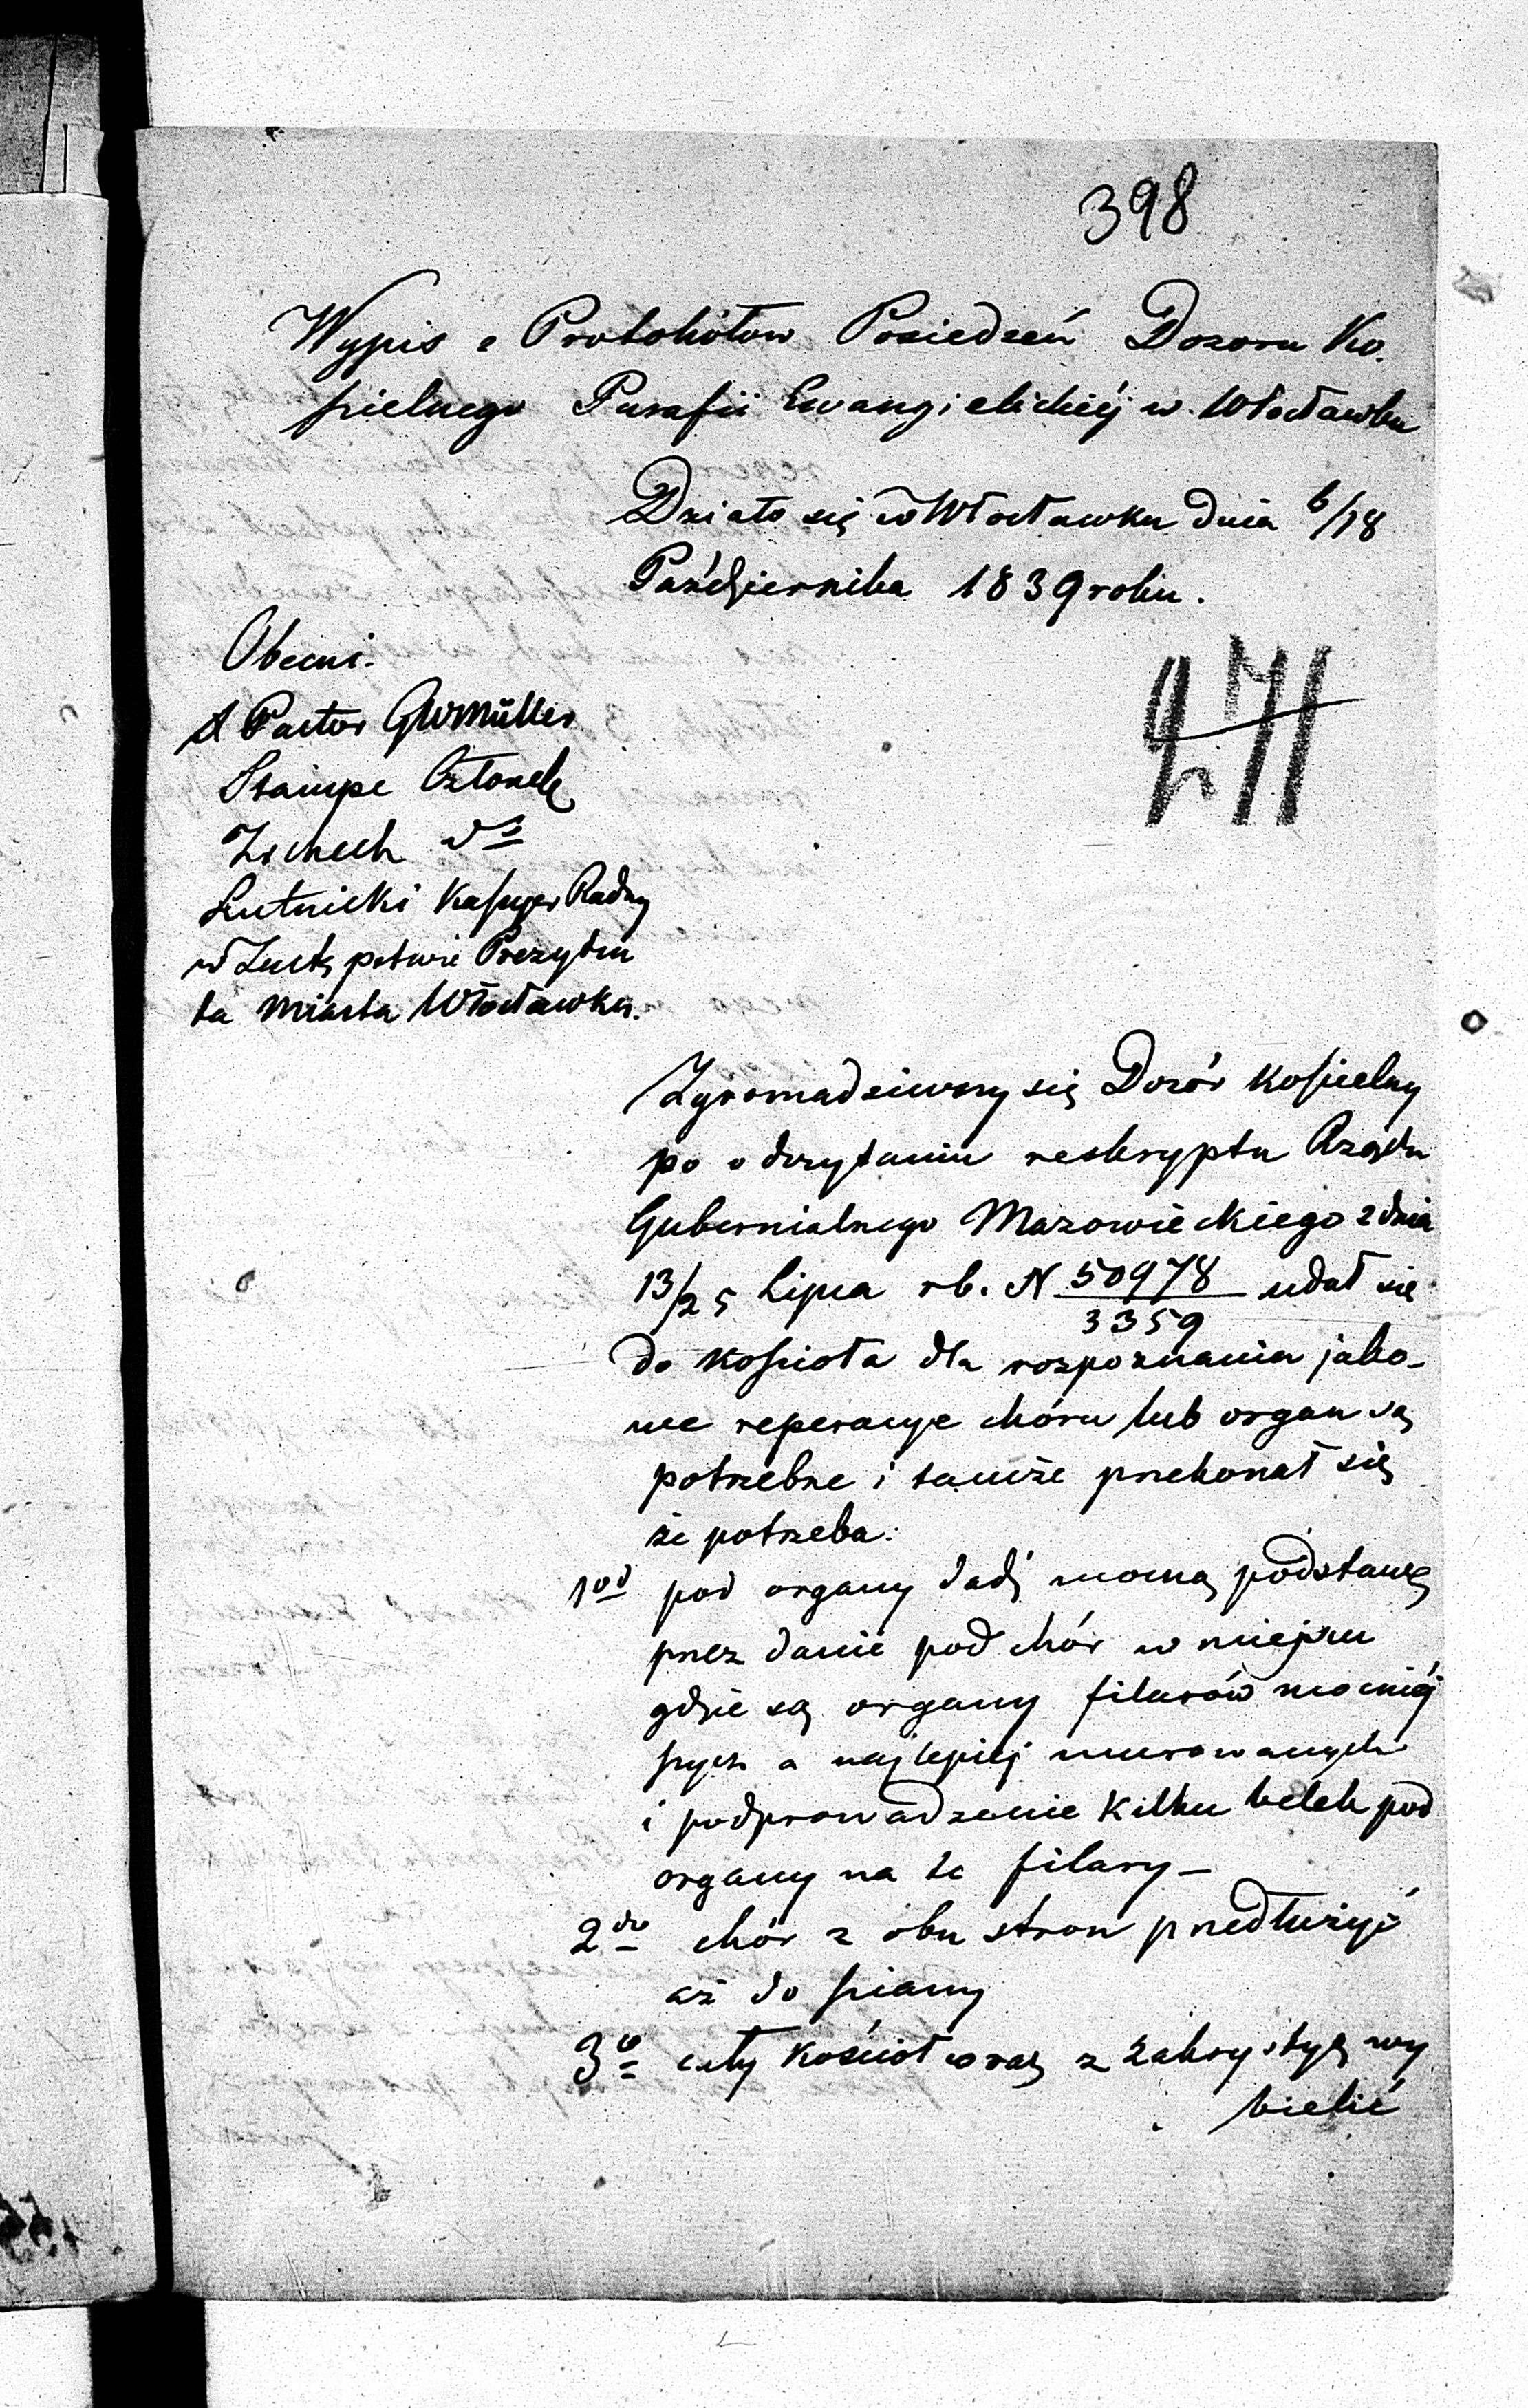 398
Wypis z Protokółow Posiedzeń Dozoru Ko
ſcielnego Parafii Ewangielickiéj w Włocławku
Działo się w Włocławku dnia 6/18
Października 1839 roku.
Obecni.
Pastor GWMüller
Stampe Członek
Zschech d°
Lutnicki Kaſsyer Radny
w Zastępstwie Prezyden
ta Miasta Włocławka.
271
Zgromadziwszy się Dozór Koſcielny
po odczytaniu reskryptu Rządu
Gubernialnego Mazowieckiego z dnia
13/25 Lipca rb. N 50978/3359 udał się
do Koſcioła dla rozpoznania jako-
we reperacye chóru lub organ są
potrzebne i tamże przekonał się
że potrzeba:
1od pod organy dadź mocną podstawę
przez danie pod chór w miejscu
gdzie są organy filarów mocniéj
szych a najlepiéj murowanych
i podprowadzenie kilku belek pod
organy na te filary –
2do chór z obu stron przedłużyć
aż do ſciany
3o cały kościoł wraz z zakrystyą wy
bielić